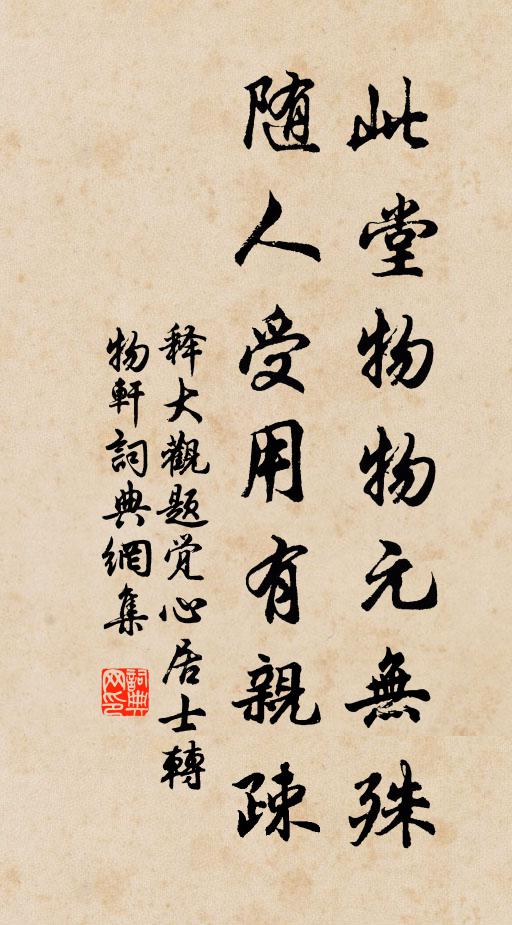 此堂物物元無殊
随人受用有親疎
释大觀题觉心居士轉
物軒詞典網集
詞典
网印